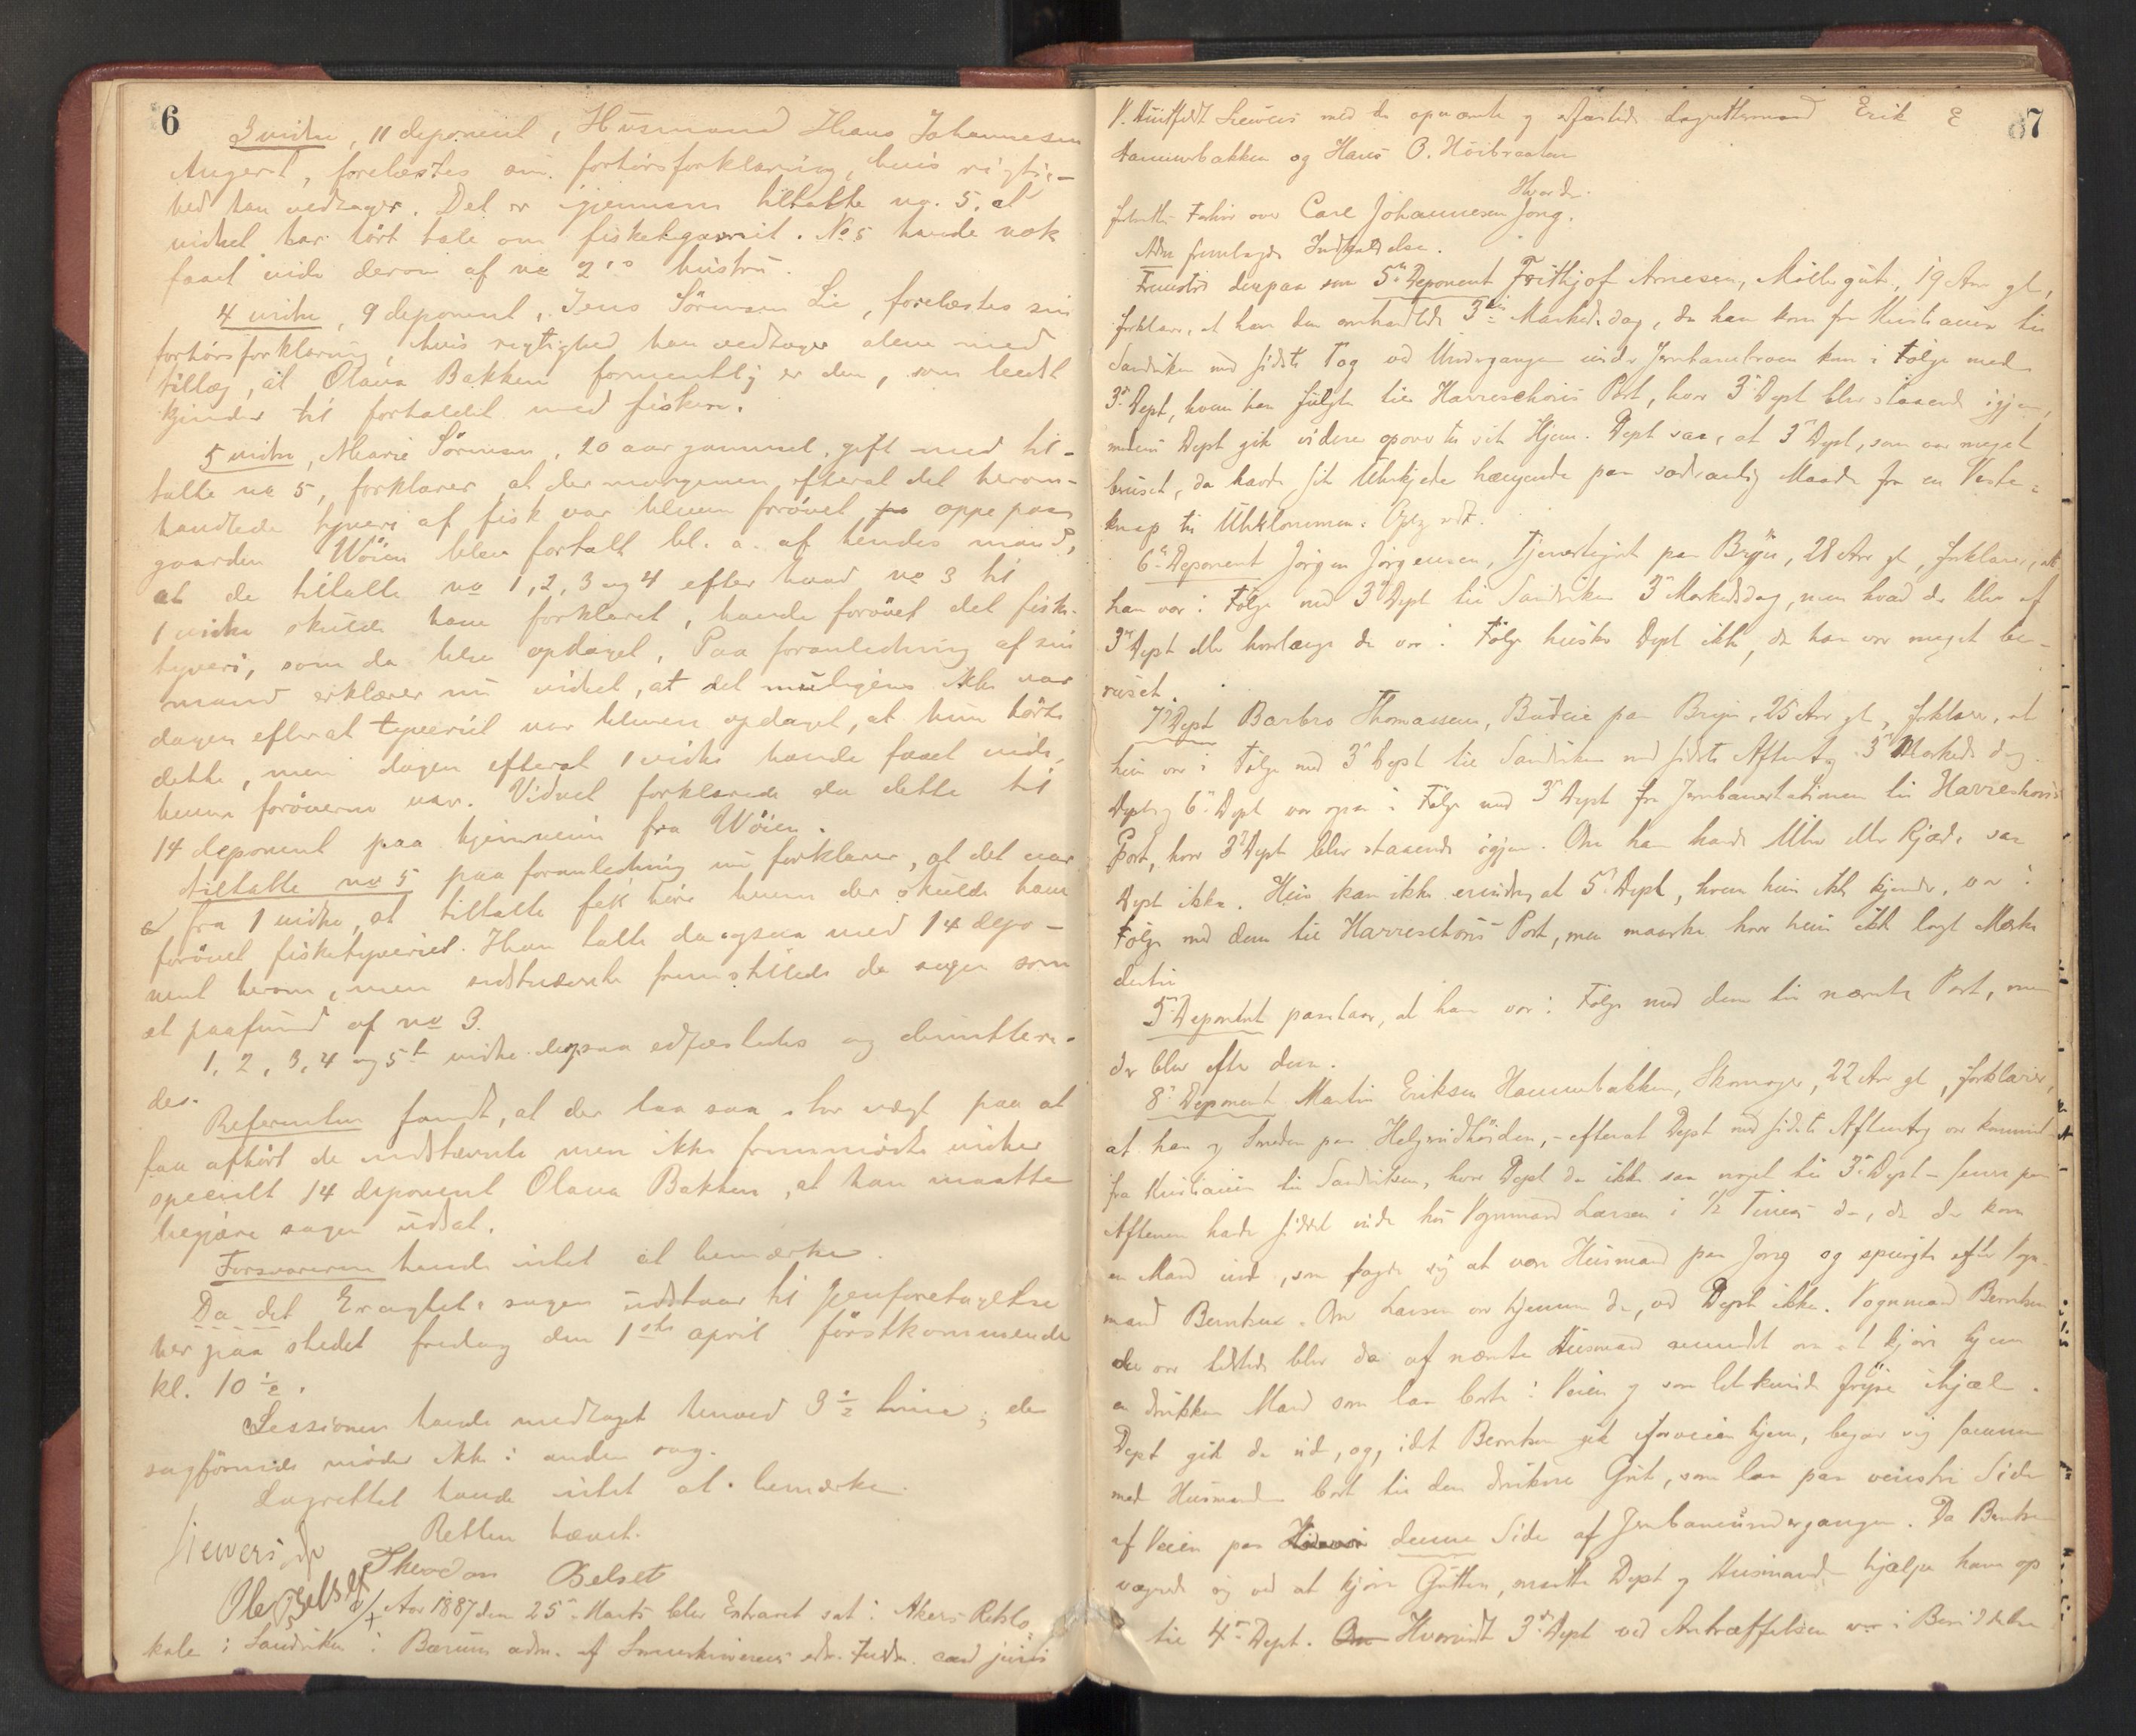 6
3 vidne, 11 deponent, Husmand Hans Johannesen
Angerst, forelæstes sin forhörsforklaring, hvis rigtig-
hed han vedtager. Det er igjennem tiltalte no. 5, at
vidnet har hört tale om fisketyveriet. No 5 havde nok
faaet vide derom af no 2's hustru.
4 vidne, 9 deponent, Jens Sörensen Lie, forelæstes sin
forhörsforklaring, hvis rigtighed han vedtager alene med
tillæg, at Olava Bakken formentlig er den, som bedst
kjender til forholdet med fisken.
5 vidne, Marie Sörensen, 20 aar gammel, gift med til-
talte no 5, forklarer at der morgenen efterat det herom-
handlede tyveri af fisk var bleven forövet oppe paa
gaarden Wöien blev fortalt bl. a. af hendes mand,
at de tiltalte no 1, 2, 3 og 4 efter hvad no 3 til
1 vidne skulde have forklaret, havde forövet det fiske-
tyveri, som da blev opdaget. Paa foranledning af sin
mand erklærer nu vidnet, at det muligens ikke var
dagen efterat tyveriet var bleven opdaget, at hun hörte
dette, men dagen efterat 1 vidne havde faaet vide,
hvem foröverne var. Vidnet forklarede da dette til
14 deponent paa hjemveien fra Wöien.
Tiltalte no 5 paa foranledning nu forklarer, at det var
fra 1 vidne, at tiltalte fik höre hvem der skulde have
forövet fisketyveriet. Han talte da ogsaa med 14 depo-
nent herom, men sidstnævnte fremstillede da sagen som
et paafund af no 3.
1, 2, 3, 4 og 5te vidne derpaa edfæstedes og dimittere-
des.
Referenten fandt, at der laa saa stor vægt paa at
faa afhört de indstævnte men ikke fremmödte vidner
specielt 14 deponent Olava Bakken, at han maatte
begjære sagen udsat.
Forsvareren havde intet at bemærke.
Da det Eragtet: sagen udstaar til Jenforetagelse
her paa stedet fredag den 1ste april förstkommende
kl. 10 ½.
Sessionen havde medtaget henved 3 ½ time; de
sagförende möder ikke i anden sag.
Lagrettet havde intet at bemærke.
Retten hævet.
Siewers
Theodor Belset
Ole Belset
Aar 1887 den 25de Marts blev Extraret sat i Akers Retslo-
kale i Sandviken i Bærum adm. af Sorenskriverens edsv. Fuldm. cand juris
7
V. Huitfeldt Siewers med de opnævnte og edfæstede Lagrettemænd Erik E
Hammerbakken og Hans O. Höibraaten
Hvorda
fortsattes Forhör over Carl Johannesen Jong.
Adm fremlagde Indkaldelse.
Fremstod derpaa som 5te Deponent Frithjof Arnesen, Möllegut, 19 Aar gl,
forklarer, at han den omhandlede 3die Markedsdag, da han kom fra Kristiania til
Sandviken med sidste Tog ved Undergangen under Jernbanebroen kom i Fölge med
3die Dept, hvem han fulgte til Harreschou's Port, hvor 3die Dept blev staaende igjen,
medens Dept gik videre opover til sit Hjem. Dept saa, at 3die Dept, som var meget
beruset, da havde sit Uhrkjede hængende paa sædvanlig Maade fra en Veste-
knap til Uhrlommen. Opl. vedt.
6te Deponent Jörgen Jörgensen, Tjenestegut paa Bryn, 28 Aar gl, forklarer, at
han var i Fölge med 3die Dept til Sandviken 3die Markedsdag, men hvad der blev af
3die Dept eller hvorlænge de var i Fölge husker Dept ikke, da han var meget be-
ruset.
7de Dept Barbro Thomassen, Budeie paa Bryn, 25 Aar gl, forklarer, at
hun var i Fölge med 3die Dept til Sandviken med sidste Aftentog 3die Markedsdag.
Dept og 6te Dept var ogsaa i Fölge med 3die Dept fra Jernbanestationen til Harreschou's
Port, hvor 3die Dept blev staaende igjen. Om han havde Uhr eller Kjæde saa
Dept ikke. Hun kan ikke erindre at 5te Dept, hvem hun ikke kjender, var i
Fölge med dem til Harreschou's Port, men maaske har hun ikke lagt Mærke
dertil.
5te Deponent paastaar, at han var i Fölge med dem til nævnte Port, men
der blev efter dem.
8de Deponent Martin Eriksen Hammerbakken, Skomager, 22 Aar gl, forklarer,
at han og Smeden paa Helgeridhöiden, - efterat Dept med sidste Aftentog var kommet
fra Kristiania til Sandviken, hvor Dept da ikke saa noget til 3die Dept - senere paa
Aftenen havde siddet inde hos Vognmand Larsen i ½ Times Tid, da der kom
en Mand ind, som sagde sig at være Husmand paa Jong og spurgte efter Vogn-
mand Berntsen. Om Larsen var hjemme da, ved Dept ikke. Vognmand Berntsen
der var tilstede blev da af nævnte Husmand anmodet om at kjöre hjem
en drukken Mand som laa borte i Veien og som let kunde fryse ihjæl.
Dept gik da ud, og, idet Berntsen gik forveien hjem, begav sig sammen
med Husmanden bort til den drukne Gut, som laa paa venstre Side
af Veien paa denne Side af Jernbaneundergangen. Da Berntsen
vægrede sig ved at kjöre Gutten, maatte Dept og Husmanden hjælpe ham op
til 4de Dept. Hvorvidt 3die Dept ved Antræffelsen var i Besiddelse